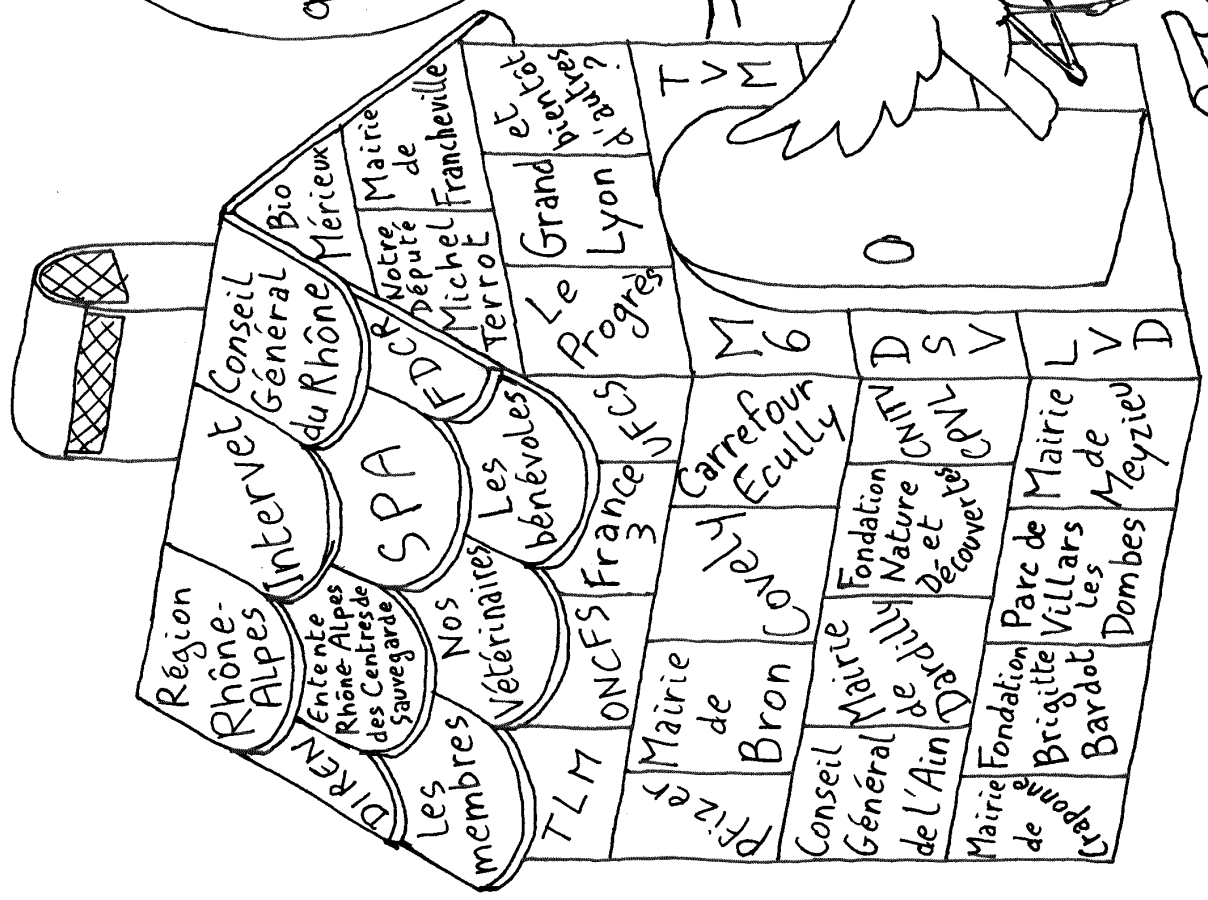 Région
Rhône-
Alpes
Intervet
Conseil
Général
du Rhône
DIREN
Entente
Rhône-Alpes
des Centres de
Sauvegarde
SPA
FDCR
Les
membres
Nos
Vétérinaires
Les
bénévoles
Bio
Mérieux
Notre
Député
Michel
Terrot
Mairie
de
Francheville
TLM
ONCFS
France
3
UFCS
Le
Progrès
Grand
Lyon
et
bientôt
d'autres
?
Pfizer
Mairie
de
Bron
Covely
Carrefour
Ecully
M
6
T
V
M
Conseil
Général
de l'Ain
Mairie
de
Dardilly
Fondation
Nature
et
Découvertes
CNITV
CPVL
D
S
V
Mairie
de
Craponne
Fondation
Brigitte
Bardot
Parc de
Villars
Les
Dombes
Mairie
de
Meyzieu
L
V
D